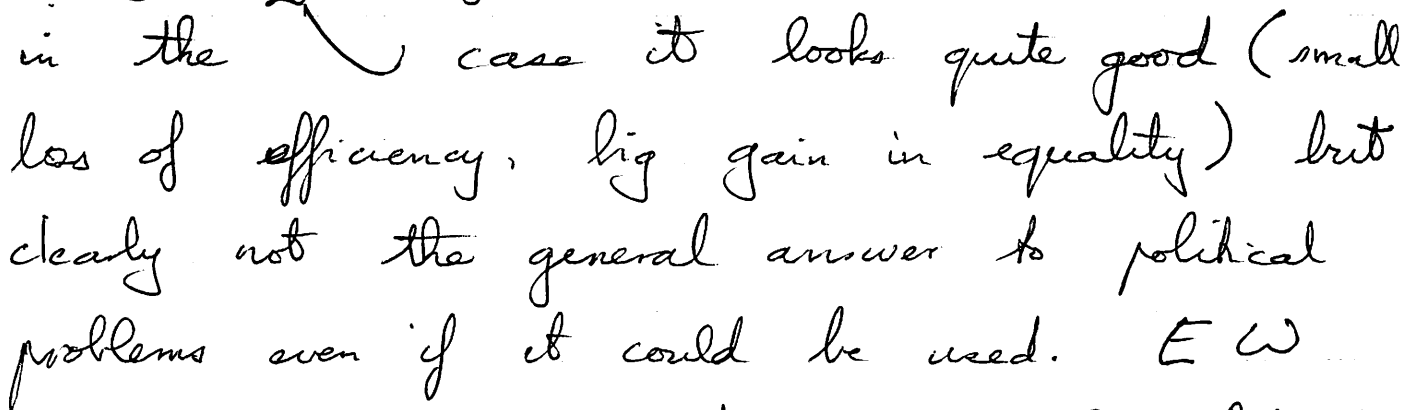 in the case it looks quite good (small
loss of efficiency, big gain in equality) but
clearly not the general answer to political
problems even if it could be used. E W